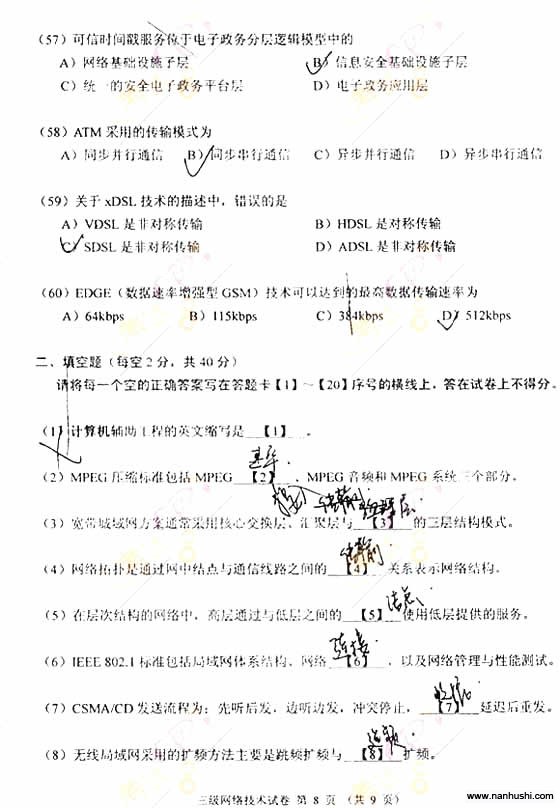 (57) 可信时间戳服务位于电子政务分层逻辑模型中的
A) 网络基础设施子层 B) 信息安全基础设施子层
C) 统一的安全电子政务平台层 D) 电子政务应用层
(58) ATM 采用的传输模式为
A) 同步并行通信 B) 同步串行通信 C) 异步并行通信 D) 异步串行通信
(59) 关于 xDSL 技术的描述中,错误的是
A) VDSL 是非对称传输 B) HDSL 是对称传输
C) SDSL 是非对称传输 D) ADSL 是非对称传输
(60) EDGE(数据速率增强型 GSM)技术可以达到的最高数据传输速率为
A) 64kbps B) 115kbps C) 384kbps D) 512kbps
二、填空题(每空 2 分,共 40 分)
请将每一个空的正确答案写在答题卡【1】~【20】序号的横线上,答在试卷上不得分。
(1) 计算机辅助工程的英文缩写是 【1】 。
(2) MPEG 压缩标准包括 MPEG 【2】 、MPEG 音频和 MPEG 系统三个部分。
(3) 宽带城域网方案通常采用核心交换层、汇聚层与 【3】 的三层结构模式。
(4) 网络拓扑是通过网中结点与通信线路之间的 【4】 关系表示网络结构。
(5) 在层次结构的网络中,高层通过与低层之间的 【5】 使用低层提供的服务。
(6) IEEE 802.1 标准包括局域网体系结构、网络 【6】 ,以及网络管理与性能测试。
(7) CSMA/CD 发送流程为:先听后发,边听边发,冲突停止, 【7】 延迟后重发。
(8) 无线局域网采用的扩频方法主要是跳频扩频与 【8】 扩频。
三级网络技术试卷 第 8 页 (共 9 页)
www.nanhushi.com